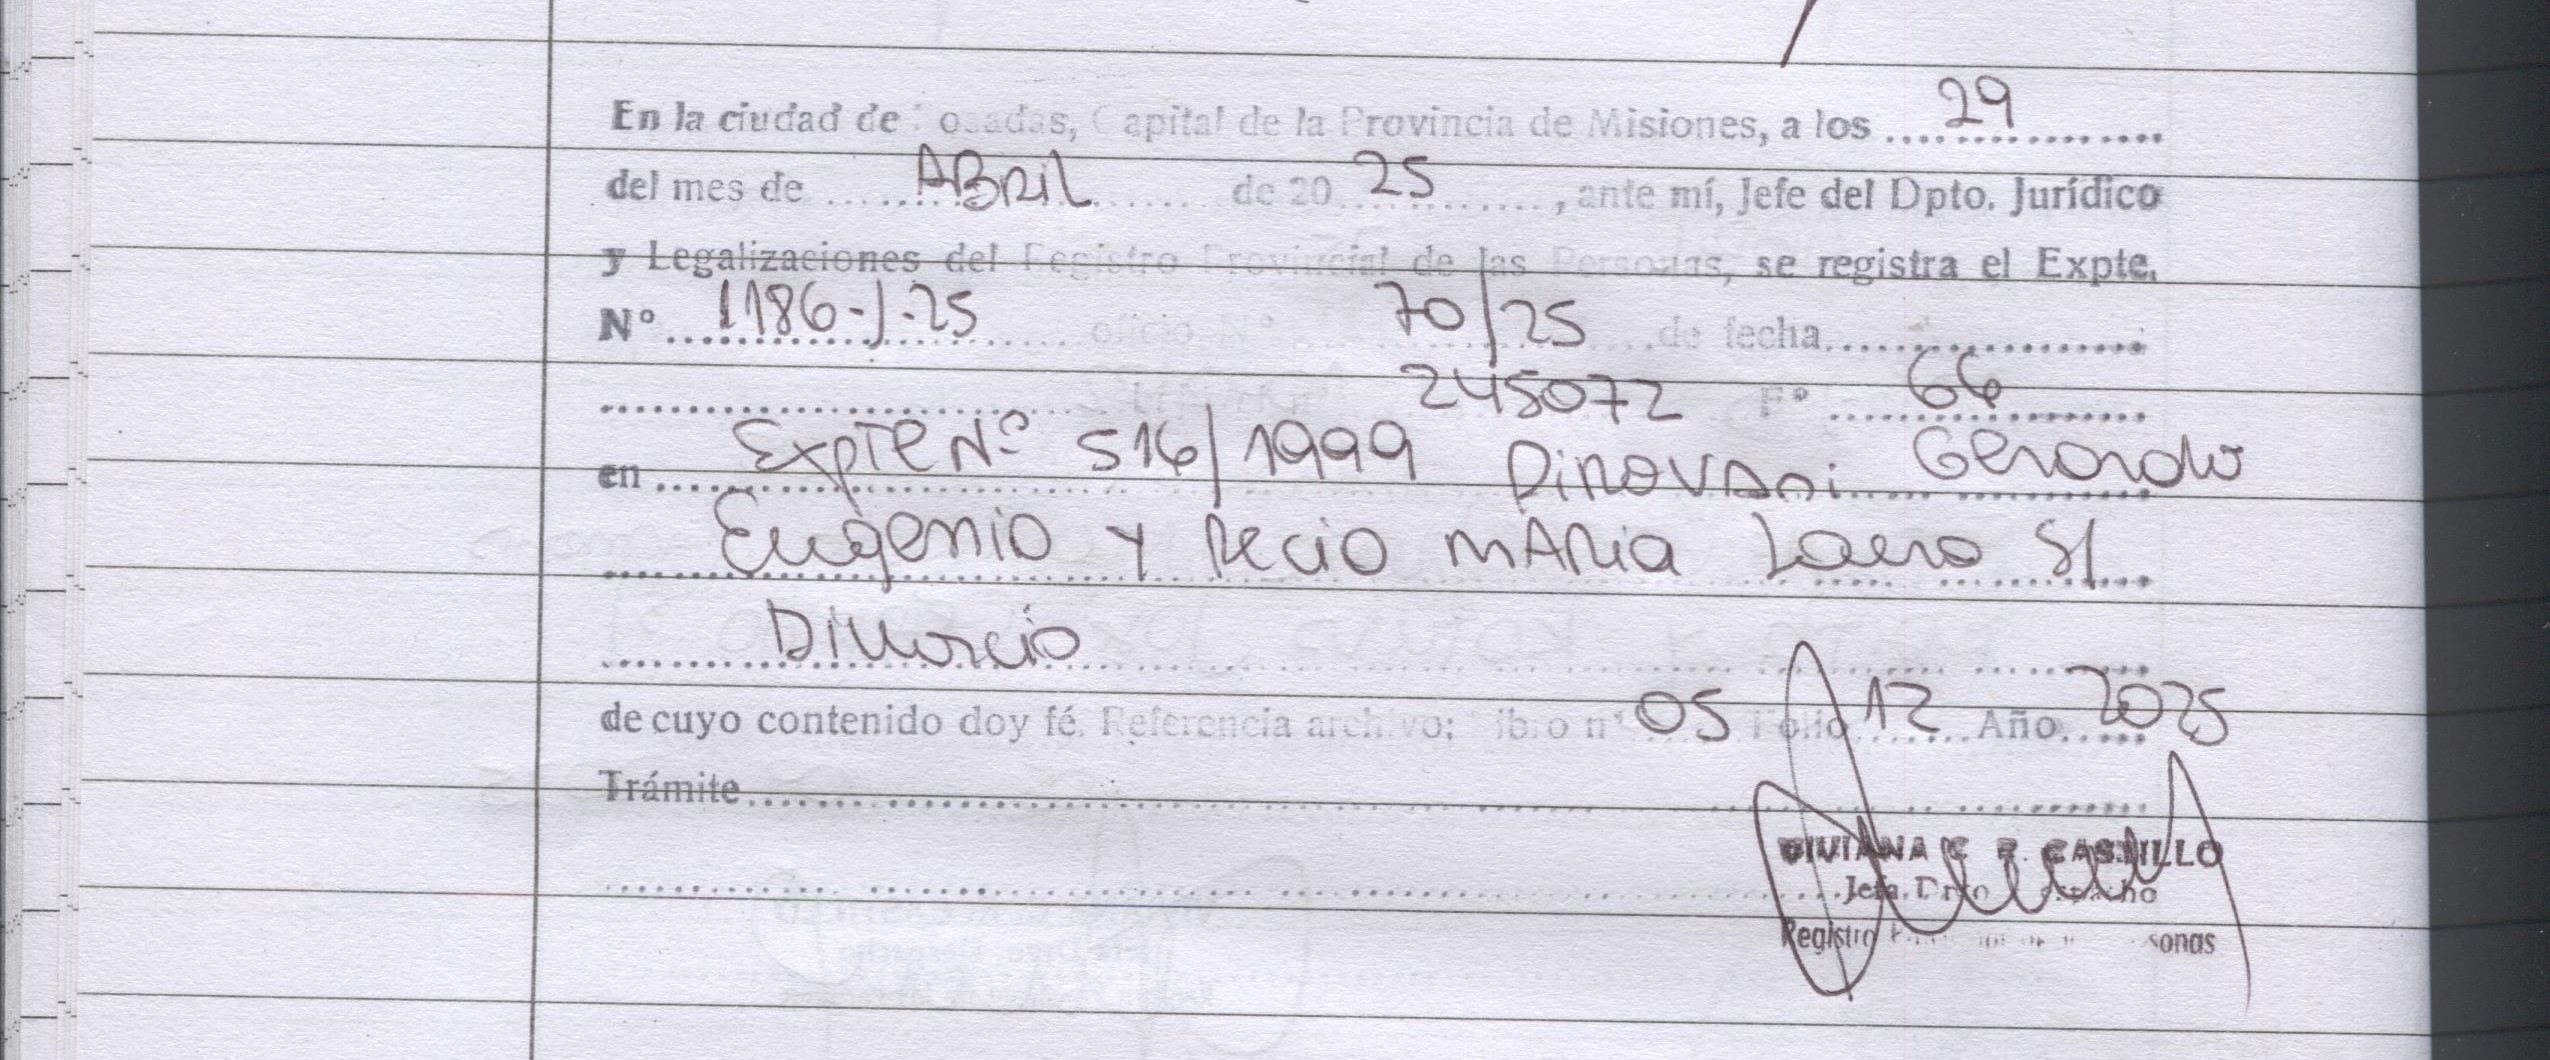 En la ciudad de Posadas, Capital de la Provincia de Misiones, a los 29
del mes de ABRIL de 20 25, ante mí, Jefe del Dpto. Jurídico
y Legalizaciones del Registro Provincial de las Personas, se registra el Expte.
Nº 1186-J-25 oficio Nº 70/25 de fecha
245072 Fº 66
en Expte Nº 516/1999 Dirovani Gerardo
Eugenio y Recio MARia Laura S/
Divorcio
de cuyo contenido doy fé. Referencia archivo: Libro nº 05 Folio 12 Año 2025
Trámite
VIVIANA C. R. CASTILLO
Jefa Dpto Despacho
Registro Provincial de las Personas